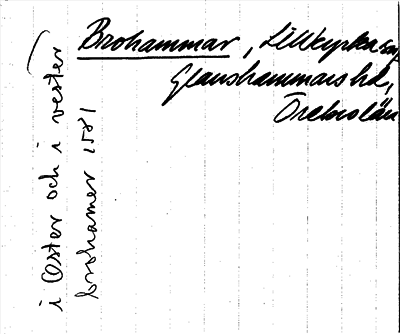 Brohammar, Lillkyrka sn,
Glanshammars hd,
Örebro län
i Öster och i vester
brohamer 1581